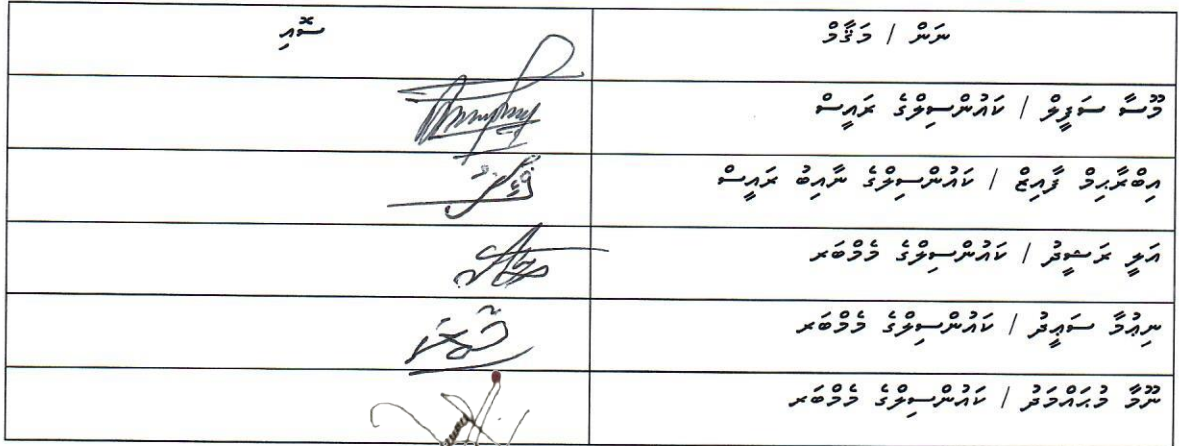 ނަން / މަޤާމް
ސޮއި
މޫސާ ސަފީލް / ކައުންސިލްގެ ރައީސް
އިބްރާހިމް ފާއިޒް / ކައުންސިލްގެ ނާއިބު ރައީސް
އަލީ ރަޝީދު / ކައުންސިލްގެ މެމްބަރ
ނިޢުމާ ސަޢީދު / ކައުންސިލްގެ މެމްބަރ
ނޫމާ މުޙައްމަދު / ކައުންސިލްގެ މެމްބަރ